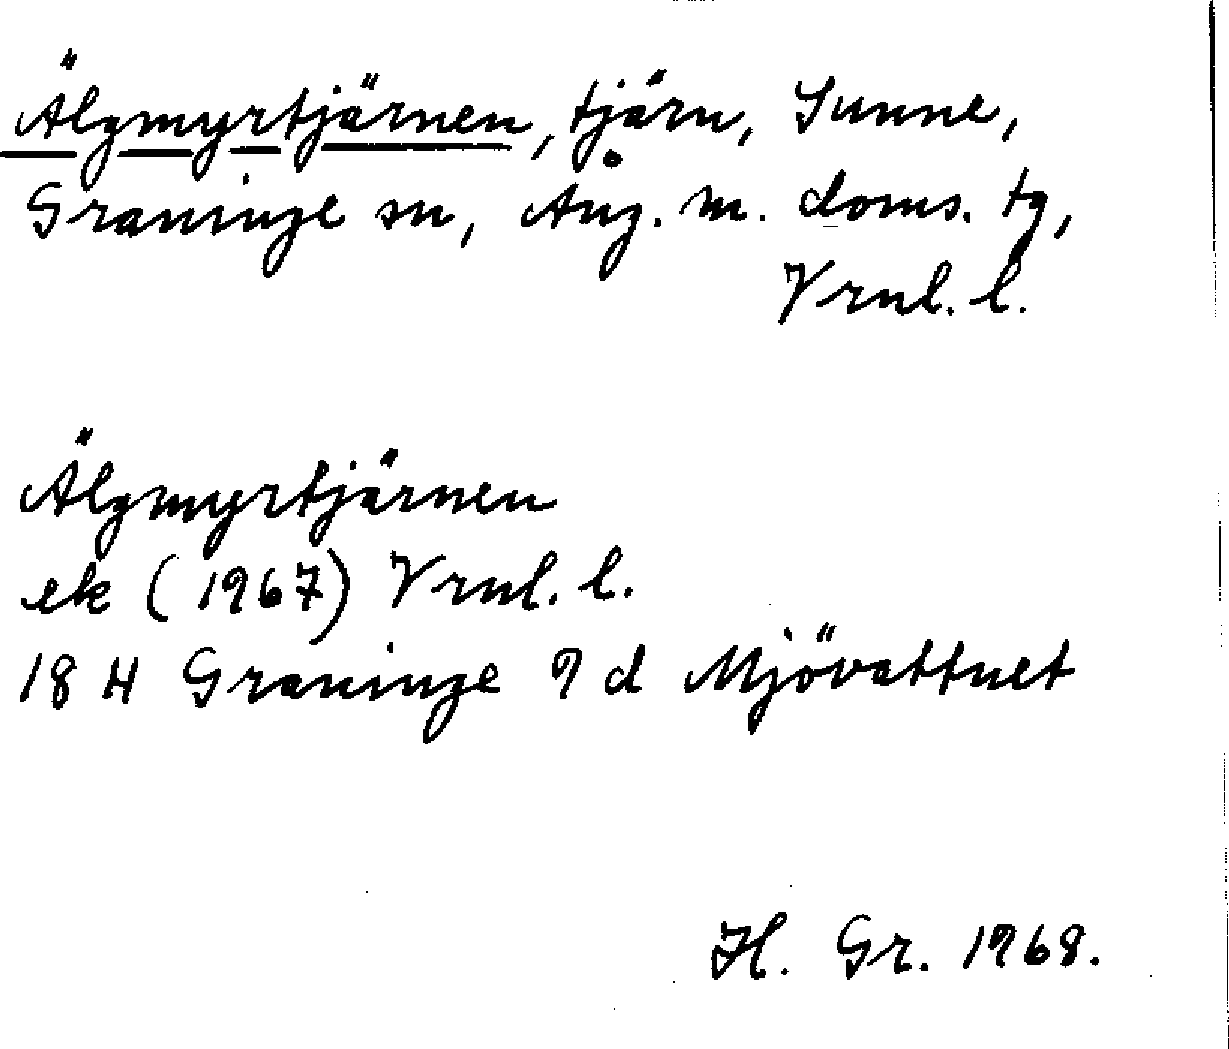 Älgmyrtjärnen, tjärn, Sunne,
Graninge sn, Ång. m. doms. tg,
Vrnl. l.
Älgmyrtjärnen
ek (1967) Vrnl. l.
18 H Graninge 9 d Mjövattnet
H. Gr. 1968.